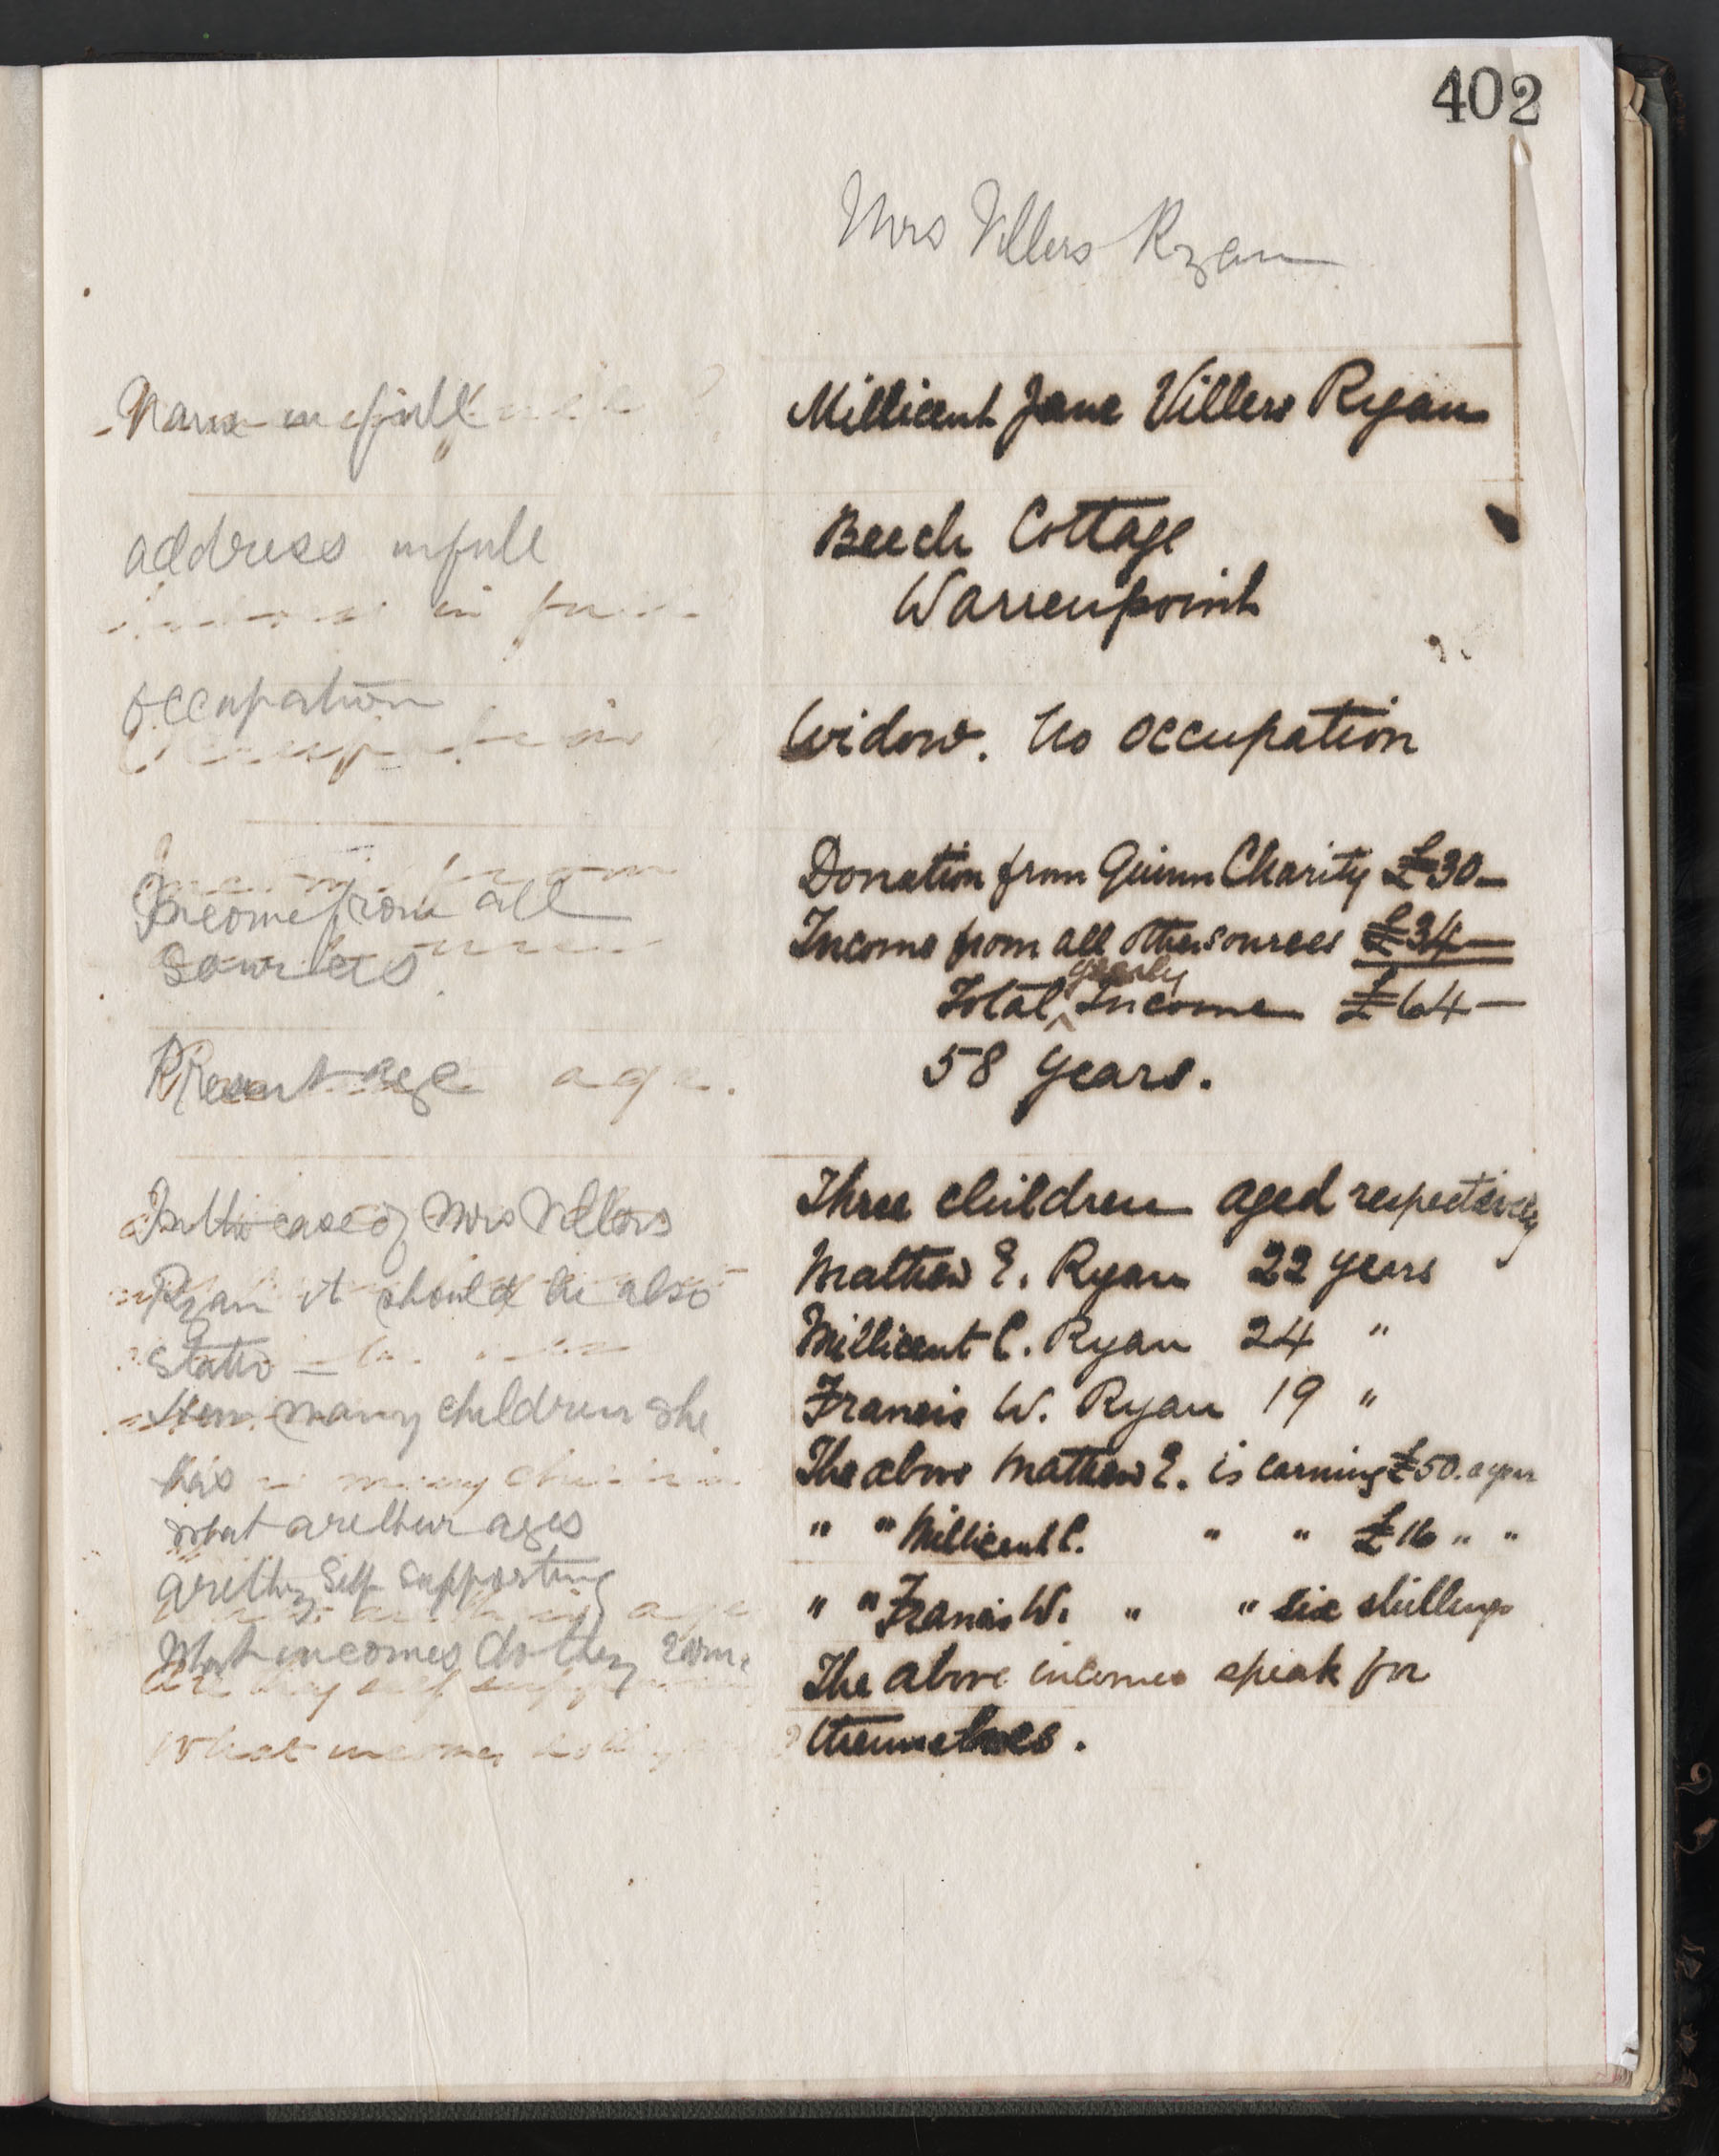 402
Mrs Villers Ryan
Name in full
Millicent Jane Villers Ryan
address in full
in
Beech Cottage
Warrenpoint
Occupation
Occupation
Widow. No occupation
Income from all
sources
Donation from Guinn Charity £30–
Income from all other sources £34–
Total yearly Income £64–
Present age
age.
58 years.
In the case of Mrs Villers
Ryan it should be also
stated –
How many children she
has
many
what are their ages
are they self supporting
What incomes do they earn.
are they self
What incomes do they
Three children aged respectively
Mathew E. Ryan 22 years
Millicent C. Ryan 24 "
Francis W. Ryan 19 "
The above Mathew E. is earning £50. a year
" " Millicent C. " " £16 " "
" " Francis W. " " six shillings
The above incomes speak for
themselves.